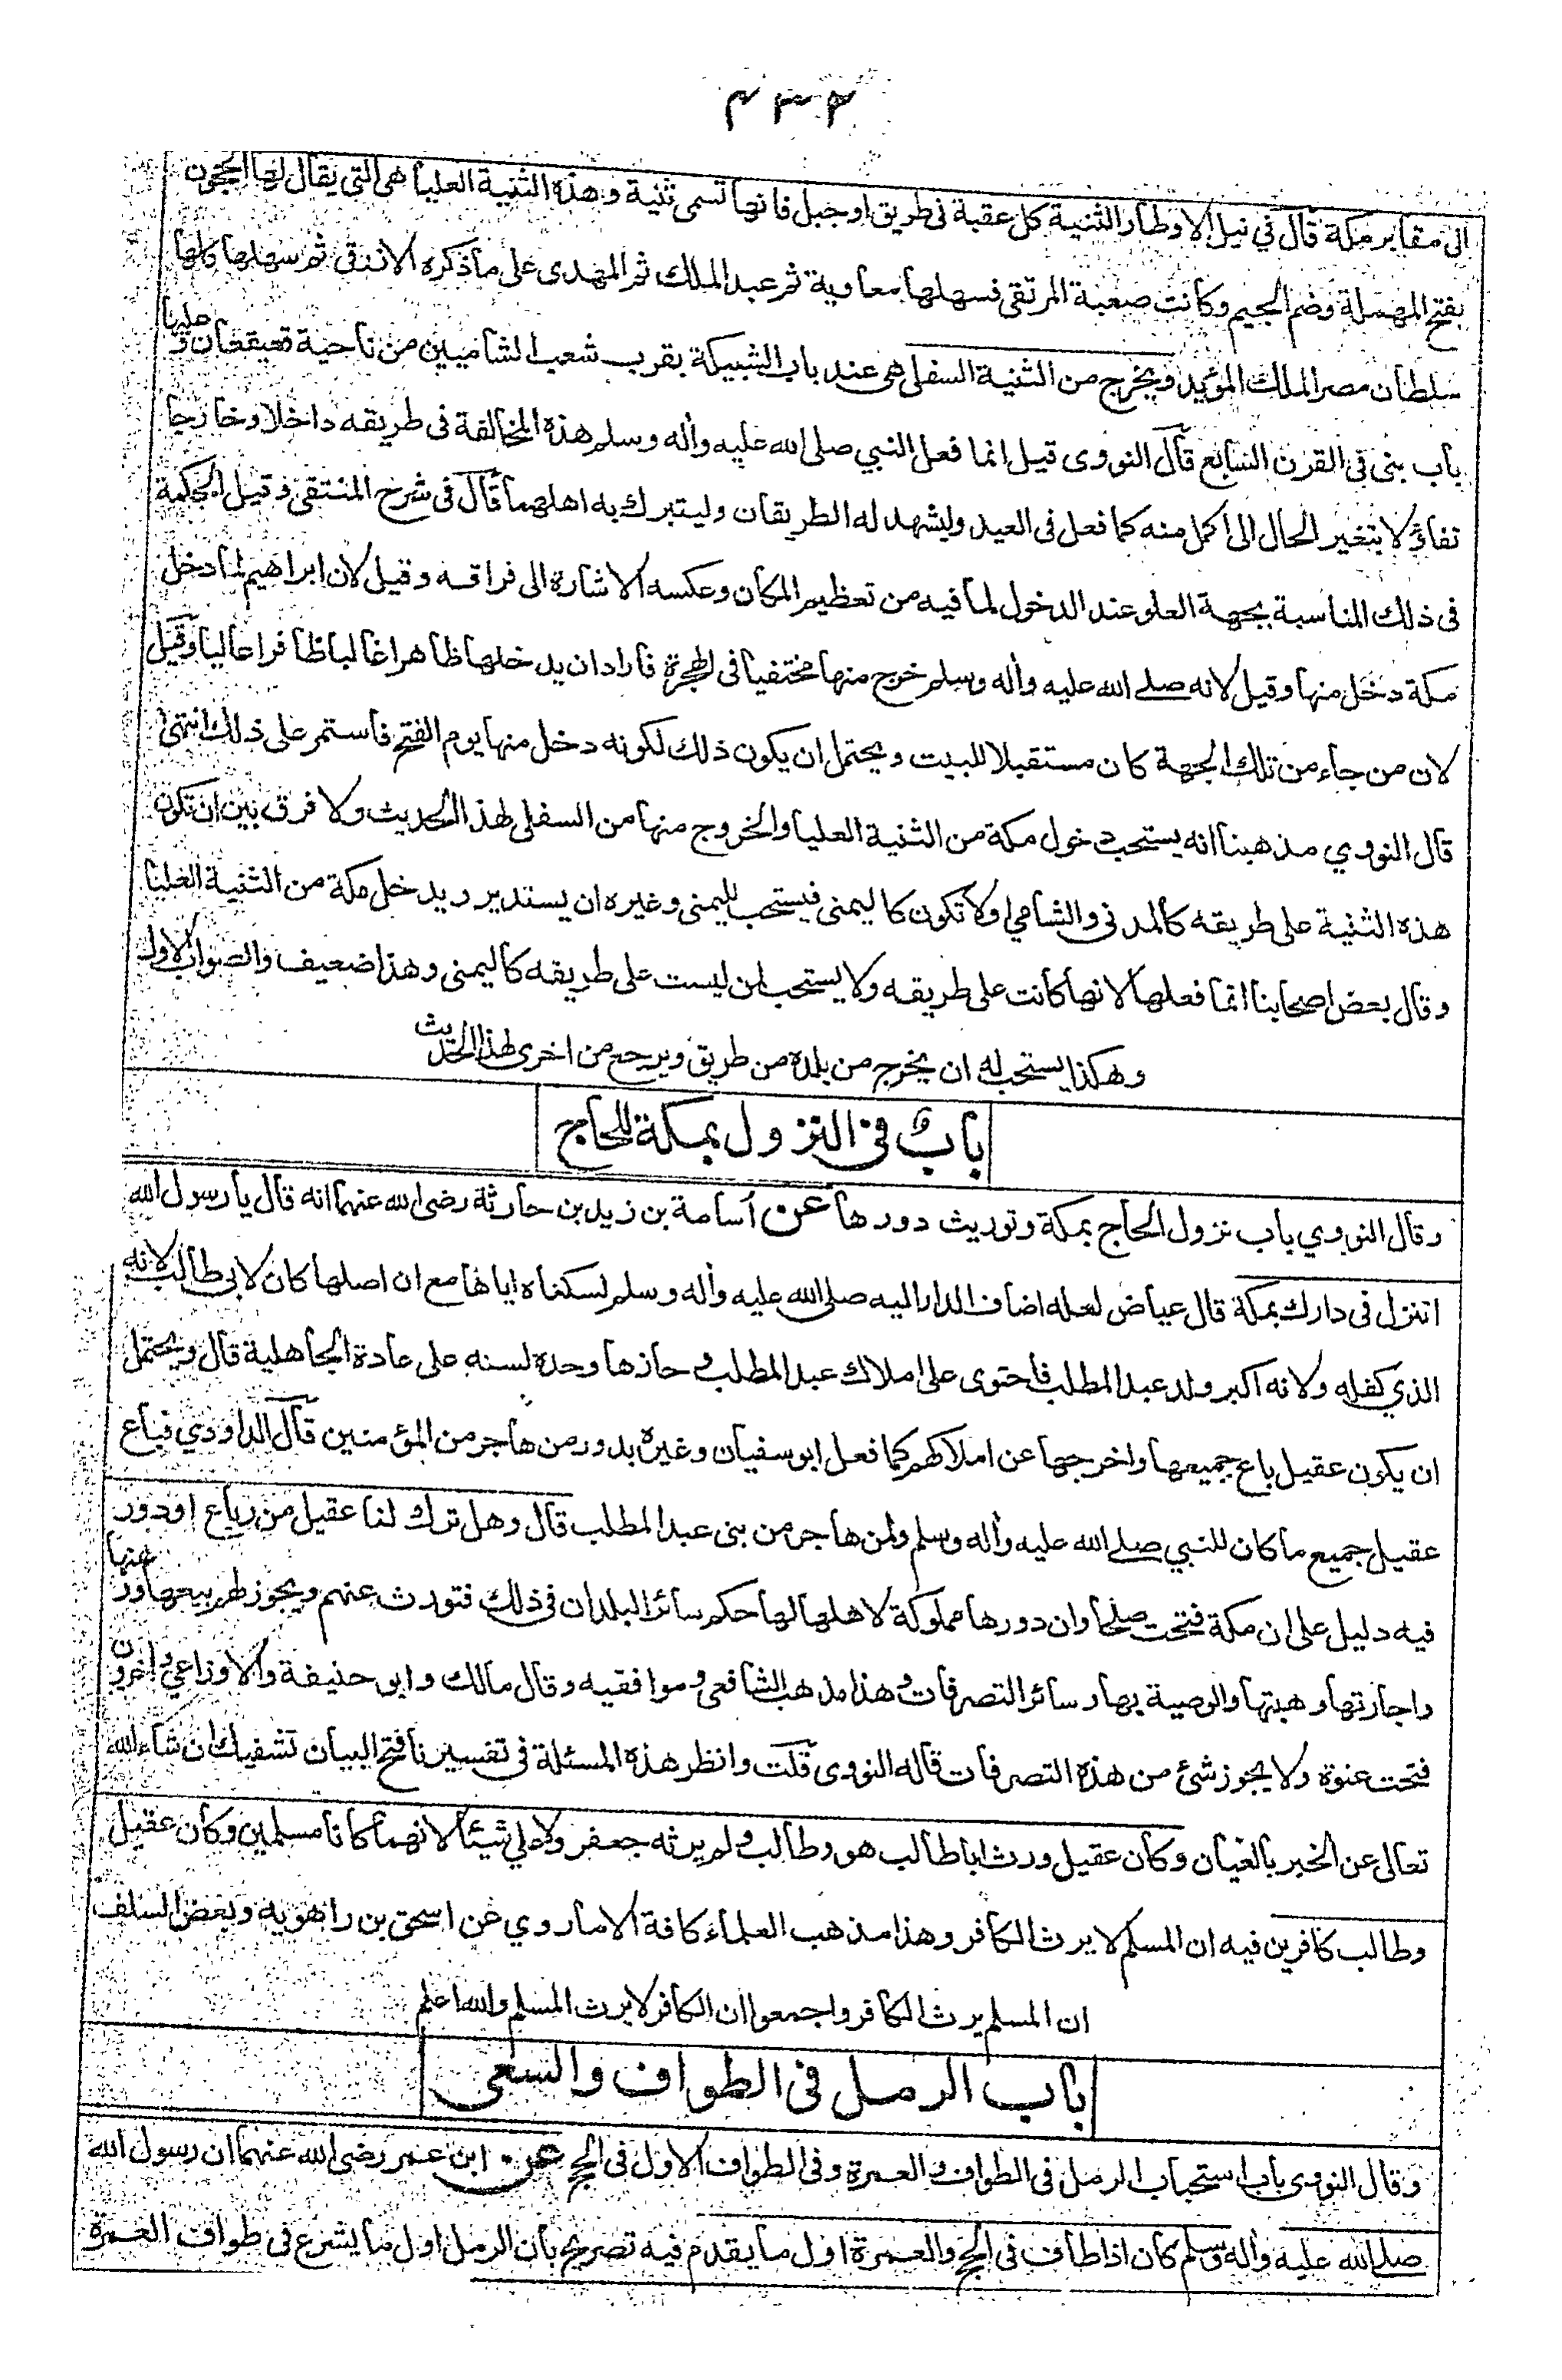 ٤٣٢
الى مقابر مكة قال في نيل الاوطار الثنية كل عقبة فى طريق او جبل فانها تسمى ثنية وهذه الثنية العليا هى التى يقال لها الحجون
بفتح المهملة وضم الجيم وكانت صعبة المرتقى فسهلها معاوية ثم عبد الملك ثم المهدى على ما ذكره الازرقى ثم سهلها كلها
سلطان مصر الملك المؤيد ويخرج من الثنية السفلى هى عند باب الشبيكة بقرب شعب الشاميين من ناحية قعيقعان وعليها
باب بنى فى القرن السابع قال النووى قيل انما فعل النبي صلى الله عليه وأله وسلم هذه المخالفة فى طريقه داخلا وخارجا
تفاؤلا بتغير الحال الى اكمل منه كما فعل فى العيد وليشهد له الطريقان وليتبرك به اهلهما قال فى شرح المنتقى وقيل الحكمة
فى ذلك المناسبة بجهة العلو عند الدخول لما فيه من تعظيم المكان وعكسه الاشارة الى فراقه وقيل لان ابراهيم لما دخل
مكة دخل منها وقيل لانه صلے الله عليه وأله وسلم خرج منها مختفيا فى الهجرة فاراد ان يدخلها ظاهرا غالبا ظافرا عاليا وقيل
لان من جاء من تلك الجهة كان مستقبلا للبيت ويحتمل ان يكون ذلك لكونه دخل منها يوم الفتح فاستمر على ذلك انتهى
قال النووي مذهبنا انه يستحب دخول مكة من الثنية العليا والخروج منها من السفلى لهذا الحديث ولا فرق بين ان تكون
هذه الثنية على طريقه كالمدنى والشامي اولا تكون كاليمنى فيستحب لليمنى وغيره ان يستدير ويدخل مكة من الثنية العليا
وقال بعض اصحابنا انما فعلها لانها كانت على طريقه ولا يستحب لمن ليست على طريقه كاليمنى وهذا ضعيف والصواب الاول
وهكذا يستحب له ان يخرج من بلده من طريق ويرجع من اخرى لهذا الحديث
باب فى النزول بمكة للحاج
وقال النووي باب نزول الحاج بمكة وتوريث دورها عن أسامة بن زيد بن حارثة رضى الله عنهما انه قال يا رسول الله
اتنزل فى دارك بمكة قال عياض لعله اضاف الدار اليه صلى الله عليه وأله وسلم لسكناه اياها مع ان اصلها كان لابى طالب لانه
الذي كفله ولانه اكبر ولد عبد المطلب فاحتوى على املاك عبد المطلب و حازها وحده لسنه على عادة الجاهلية قال ويحتمل
ان يكون عقيل باع جميعها واخرجها عن املاكهم كما فعل ابو سفيان وغيره بدور من هاجر من المؤمنين قال الداودي فباع
عقيل جميع ما كان للنبي صلے الله عليه وأله وسلم ولمن هاجر من بنى عبد المطلب قال وهل ترك لنا عقيل من رباع او دور
فيه دليل على ان مكة فتحت صلحا وان دورها مملوكة لاهلها لها حكم سائر البلدان فى ذلك فتورث عنهم ويجوز لهم بيعها ورهنها
واجارتها وهبتها والوصية بها وسائر التصرفات وهذا مذهب الشافعى وموافقيه وقال مالك وابو حنيفة والاوزاعي واخرون
فتحت عنوة ولا يجوز شئ من هذه التصرفات قاله النووى قلت وانظر هذه المسئلة فى تفسيرنا فتح البيان تشفيك ان شاء الله
تعالى عن الخبر بالعيان وكان عقيل ورث ابا طالب هو وطالب ولم يرثه جعفر ولا علي شيئا لانهما كانا مسلمين وكان عقيل
وطالب كافرين فيه ان المسلم لا يرث الكافر وهذا مذهب العلماء كافة الا ما روي عن اسحق بن راهويه وبعض السلف
ان المسلم يرث الكافر واجمعوا ان الكافر لا يرث المسلم والله اعلم
باب الرمل فى الطواف والسعى
وقال النووى باب استحباب الرمل فى الطواف والعمرة وفى الطواف الاول فى الحج عن ابن عمر رضى الله عنهما ان رسول الله
صلے الله عليه وأله وسلم كان اذا طاف فى الحج والعمرة اول ما يقدم فيه تصريح بان الرمل اول ما يشرع فى طواف العمرة